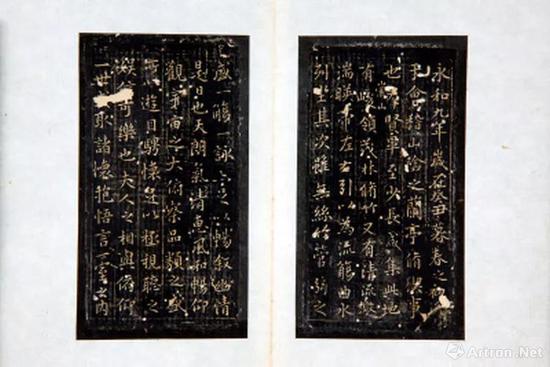 永和九年歲在癸丑暮春之初
于會稽山陰之蘭亭脩稧事
也羣賢畢至少長咸集此地
崇山
有峻領茂林脩竹又有清流激
湍暎帶左右引以為流觴曲水
列坐其次雖無絲竹管弦之
盛一觴一詠亦足以暢敘幽情
是日也天朗氣清惠風和暢仰
觀宇宙之大俯察品類之盛
遊目騁懷足以極視聽之
娛信可樂也夫人之相與俯仰
一世取諸懷抱悟言一室之內
Artron.Net